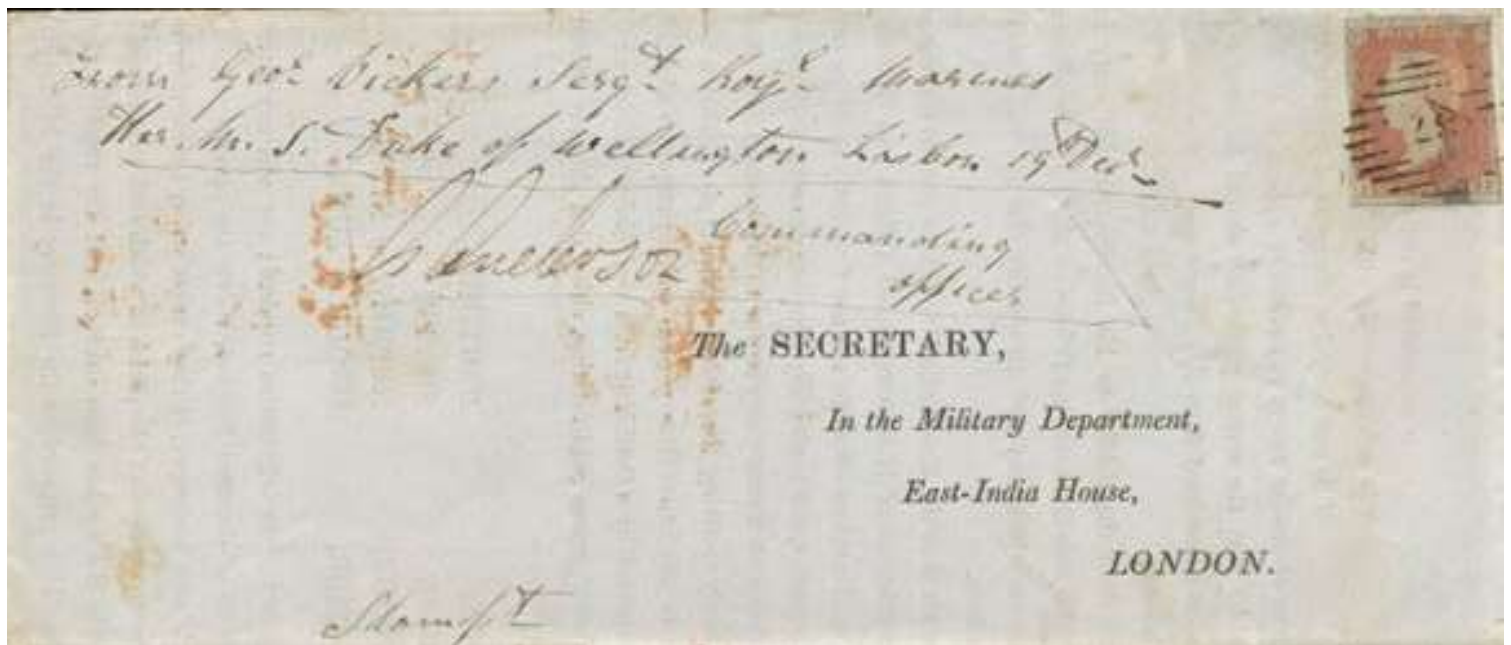 From Geoe Vickers Sergt Royl Marines
Her M. S. Duke of Wellington Lisbon 19 Decr
Commanding
officer
The SECRETARY,
In the Military Department,
East-India House,
LONDON.